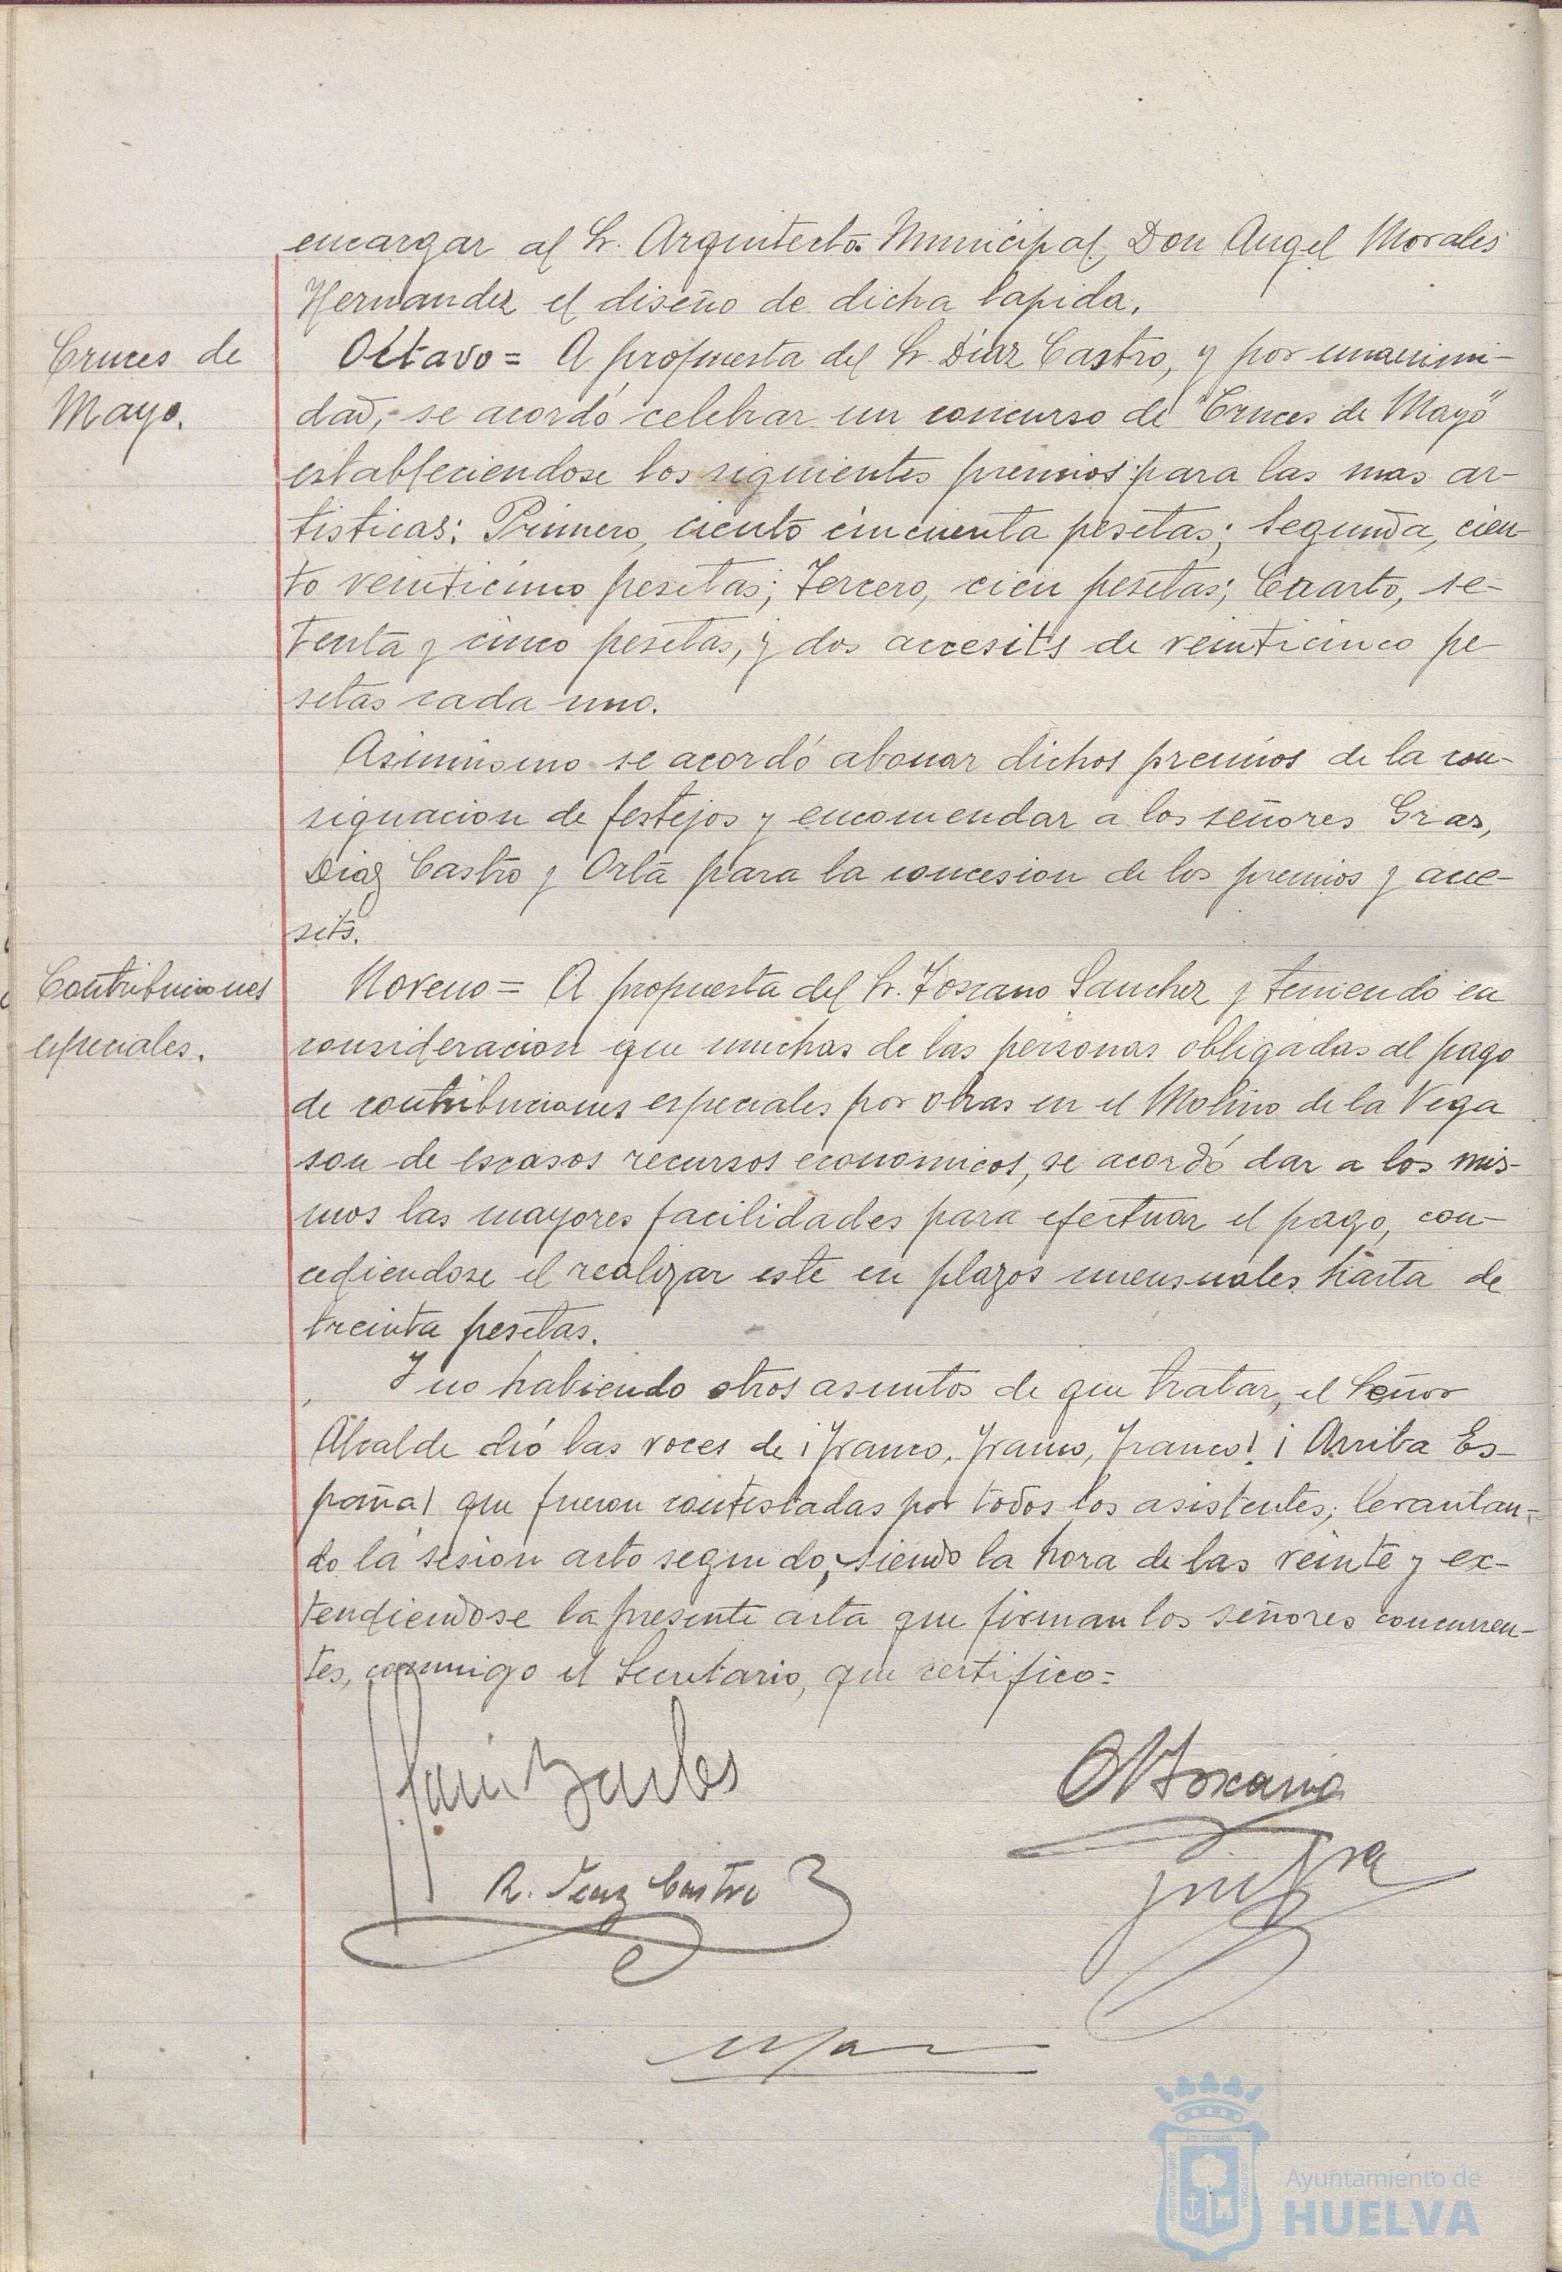 encargar al Sr. Arquitecto Municipal, Don Angel Morales
Hernandez el diseño de dicha lapida.
Cruces de
Mayo.
Octavo = A propuesta del Sr. Diaz Castro, y por unanimi-
dad, se acordó celebrar un concurso de "Cruces de Mayo"
estableciendose los siguientes premios para las mas ar-
tisticas: Primero, ciento cincuenta pesetas; Segundo, cien-
to veinticinco pesetas; Tercero, cien pesetas; Cuarto, se-
tenta y cinco pesetas, y dos accesits de veinticinco pe-
setas cada uno.
Asimismo se acordó abonar dichos premios de la con-
signacion de festejos y encomendar a los señores Gras,
Diaz Castro y Orta para la concesion de los premios y acce-
sits.
Contribuciones
especiales.
Noveno = A propuesta del Sr. Toscano Sanchez y teniendo en
consideracion que muchas de las personas obligadas al pago
de contribuciones especiales por obras en el Molino de la Vega
son de escasos recursos economicos, se acordó dar a los mis-
mos las mayores facilidades para efectuar el pago, con-
cediendose el realizar este en plazos mensuales hasta de
treinta pesetas.
Y no habiendo otros asuntos de que tratar, el Señor
Alcalde dió las voces de ¡Franco, Franco, Franco! ¡Arriba Es-
paña! que fueron contestadas por todos los asistentes, levantan-
do la sesion acto seguido, siendo la hora de las veinte y ex-
tendiendose la presente acta que firman los señores concurren-
tes, conmigo el Secretario, que certifico =
Toscano
R. Diaz Castro
Ayuntamiento de
HUELVA